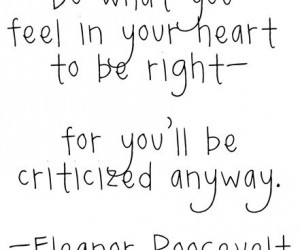 Do what you
feel in your heart
to be right—
for you'll be
criticized anyway.
—Eleanor Roosevelt